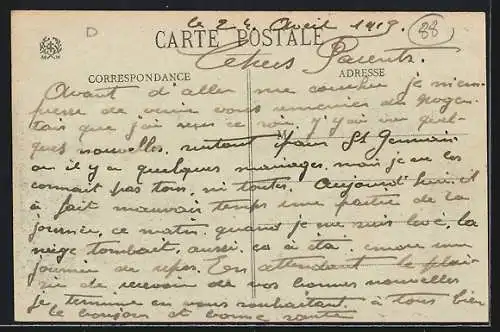 le 24 Avril 1919
88
D
CARTE POSTALE
Chers Parents.
CORRESPONDANCE
ADRESSE
Avant d'aller me coucher je m'em-
presse de venir vous remercier du Nogen-
tais que j'ai reçu ce soir, j'y ai vu quel-
ques nouvelles, surtout pour St Germain
M
ou il y a quelques mariages, mais je ne les
connait pas tous, ni toutes. Aujourd'hui il
à fait mauvais temps une partie de la
journée, ce matin quand je me suis levé, la
neige tombait, aussi ça à été encore une
journée de repos. En attendant le plai-
sir de recevoir de vos bonnes nouvelles
Je termine en vous souhaitant à tous bien
le bonjour et bonne santé